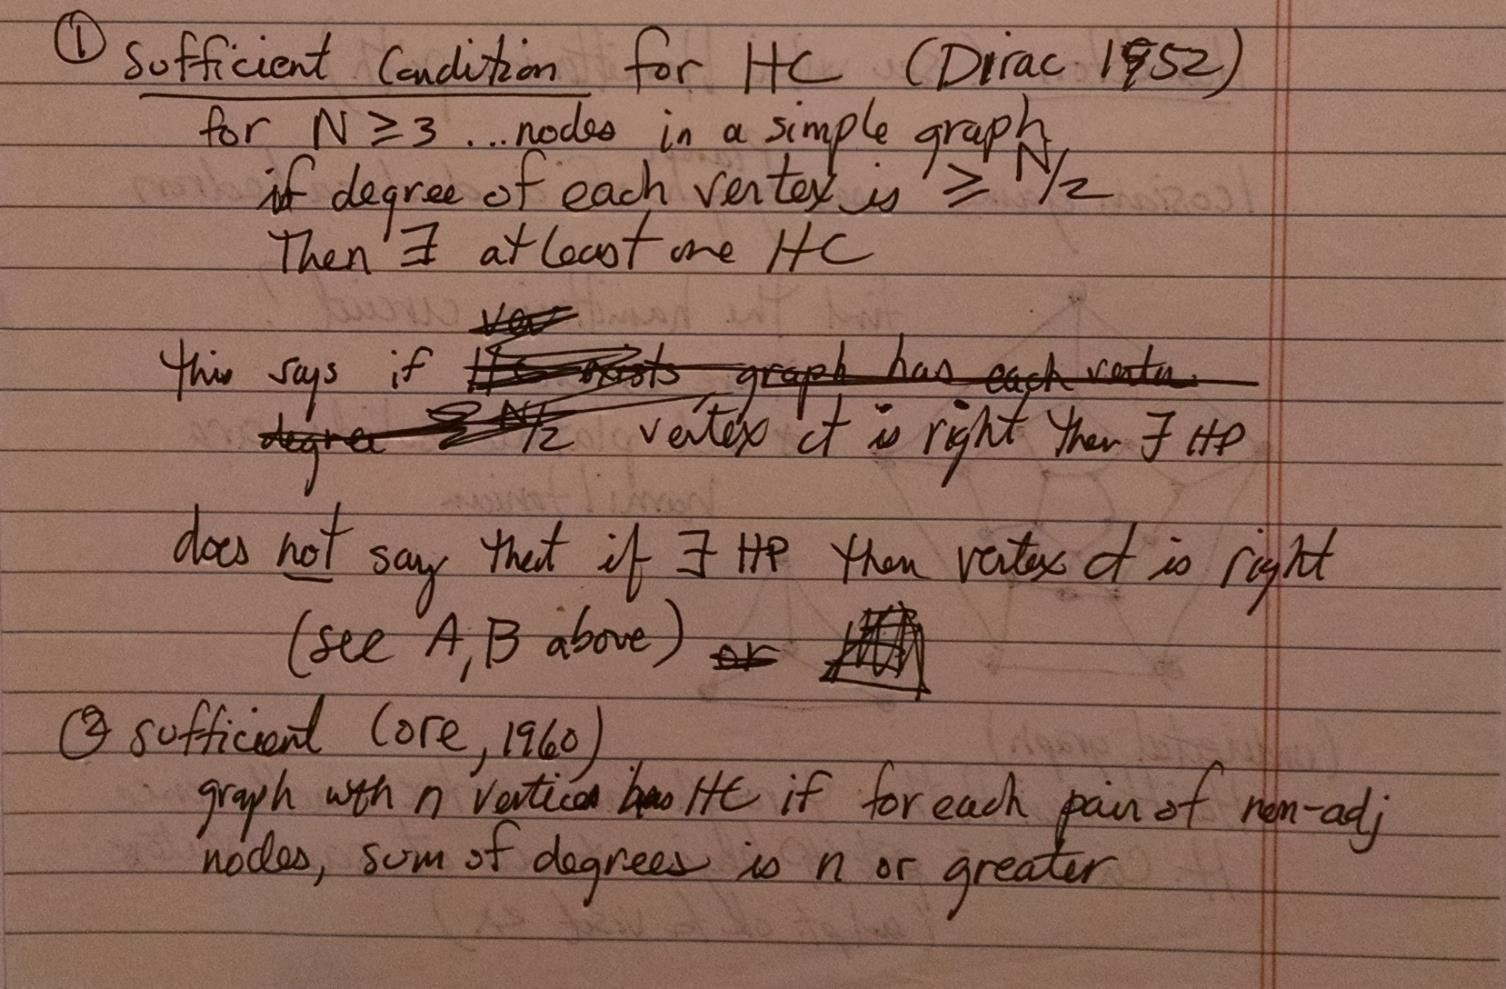 ① Sufficient Condition for HC (Dirac 1952)
for N ≥ 3 ... nodes in a simple graph
if degree of each vertex is ≥ N/2
Then ∃ at least one HC
this says if graph has each
degree ≥ N/2 vertex ct is right then ∃ HP
does not say that if ∃ HP then vertex ct is right
(see A, B above) or
② sufficient (ore, 1960)
graph with n vertices has HC if for each pair of non-adj
nodes, sum of degrees is n or greater